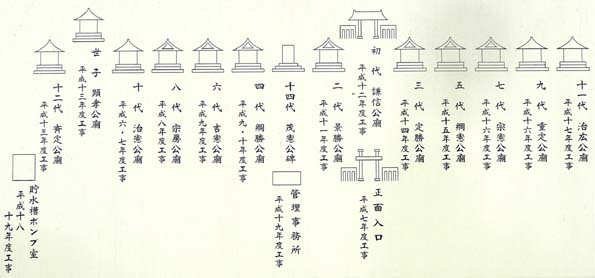 十一代 治広公廟
平成十七年度工事
九代 重定公廟
平成十六年度工事
七代 宗憲公廟
平成十六年度工事
五代 綱憲公廟
平成十五年度工事
三代 定勝公廟
平成十四年度工事
初代 謙信公廟
平成十二年度工事
正面入口
平成七年度工事
二代 景勝公廟
平成十一年度工事
十四代 茂憲公碑
管理事務所
平成十九年度工事
四代 綱勝公廟
平成九・十年度工事
六代 吉憲公廟
平成九年度工事
八代 宗房公廟
平成八年度工事
十代 治憲公廟
平成六・七年度工事
世子 顕孝公廟
平成十三年度工事
十二代 斉定公廟
平成十三年度工事
貯水槽ポンプ室
平成十八
十九年度工事